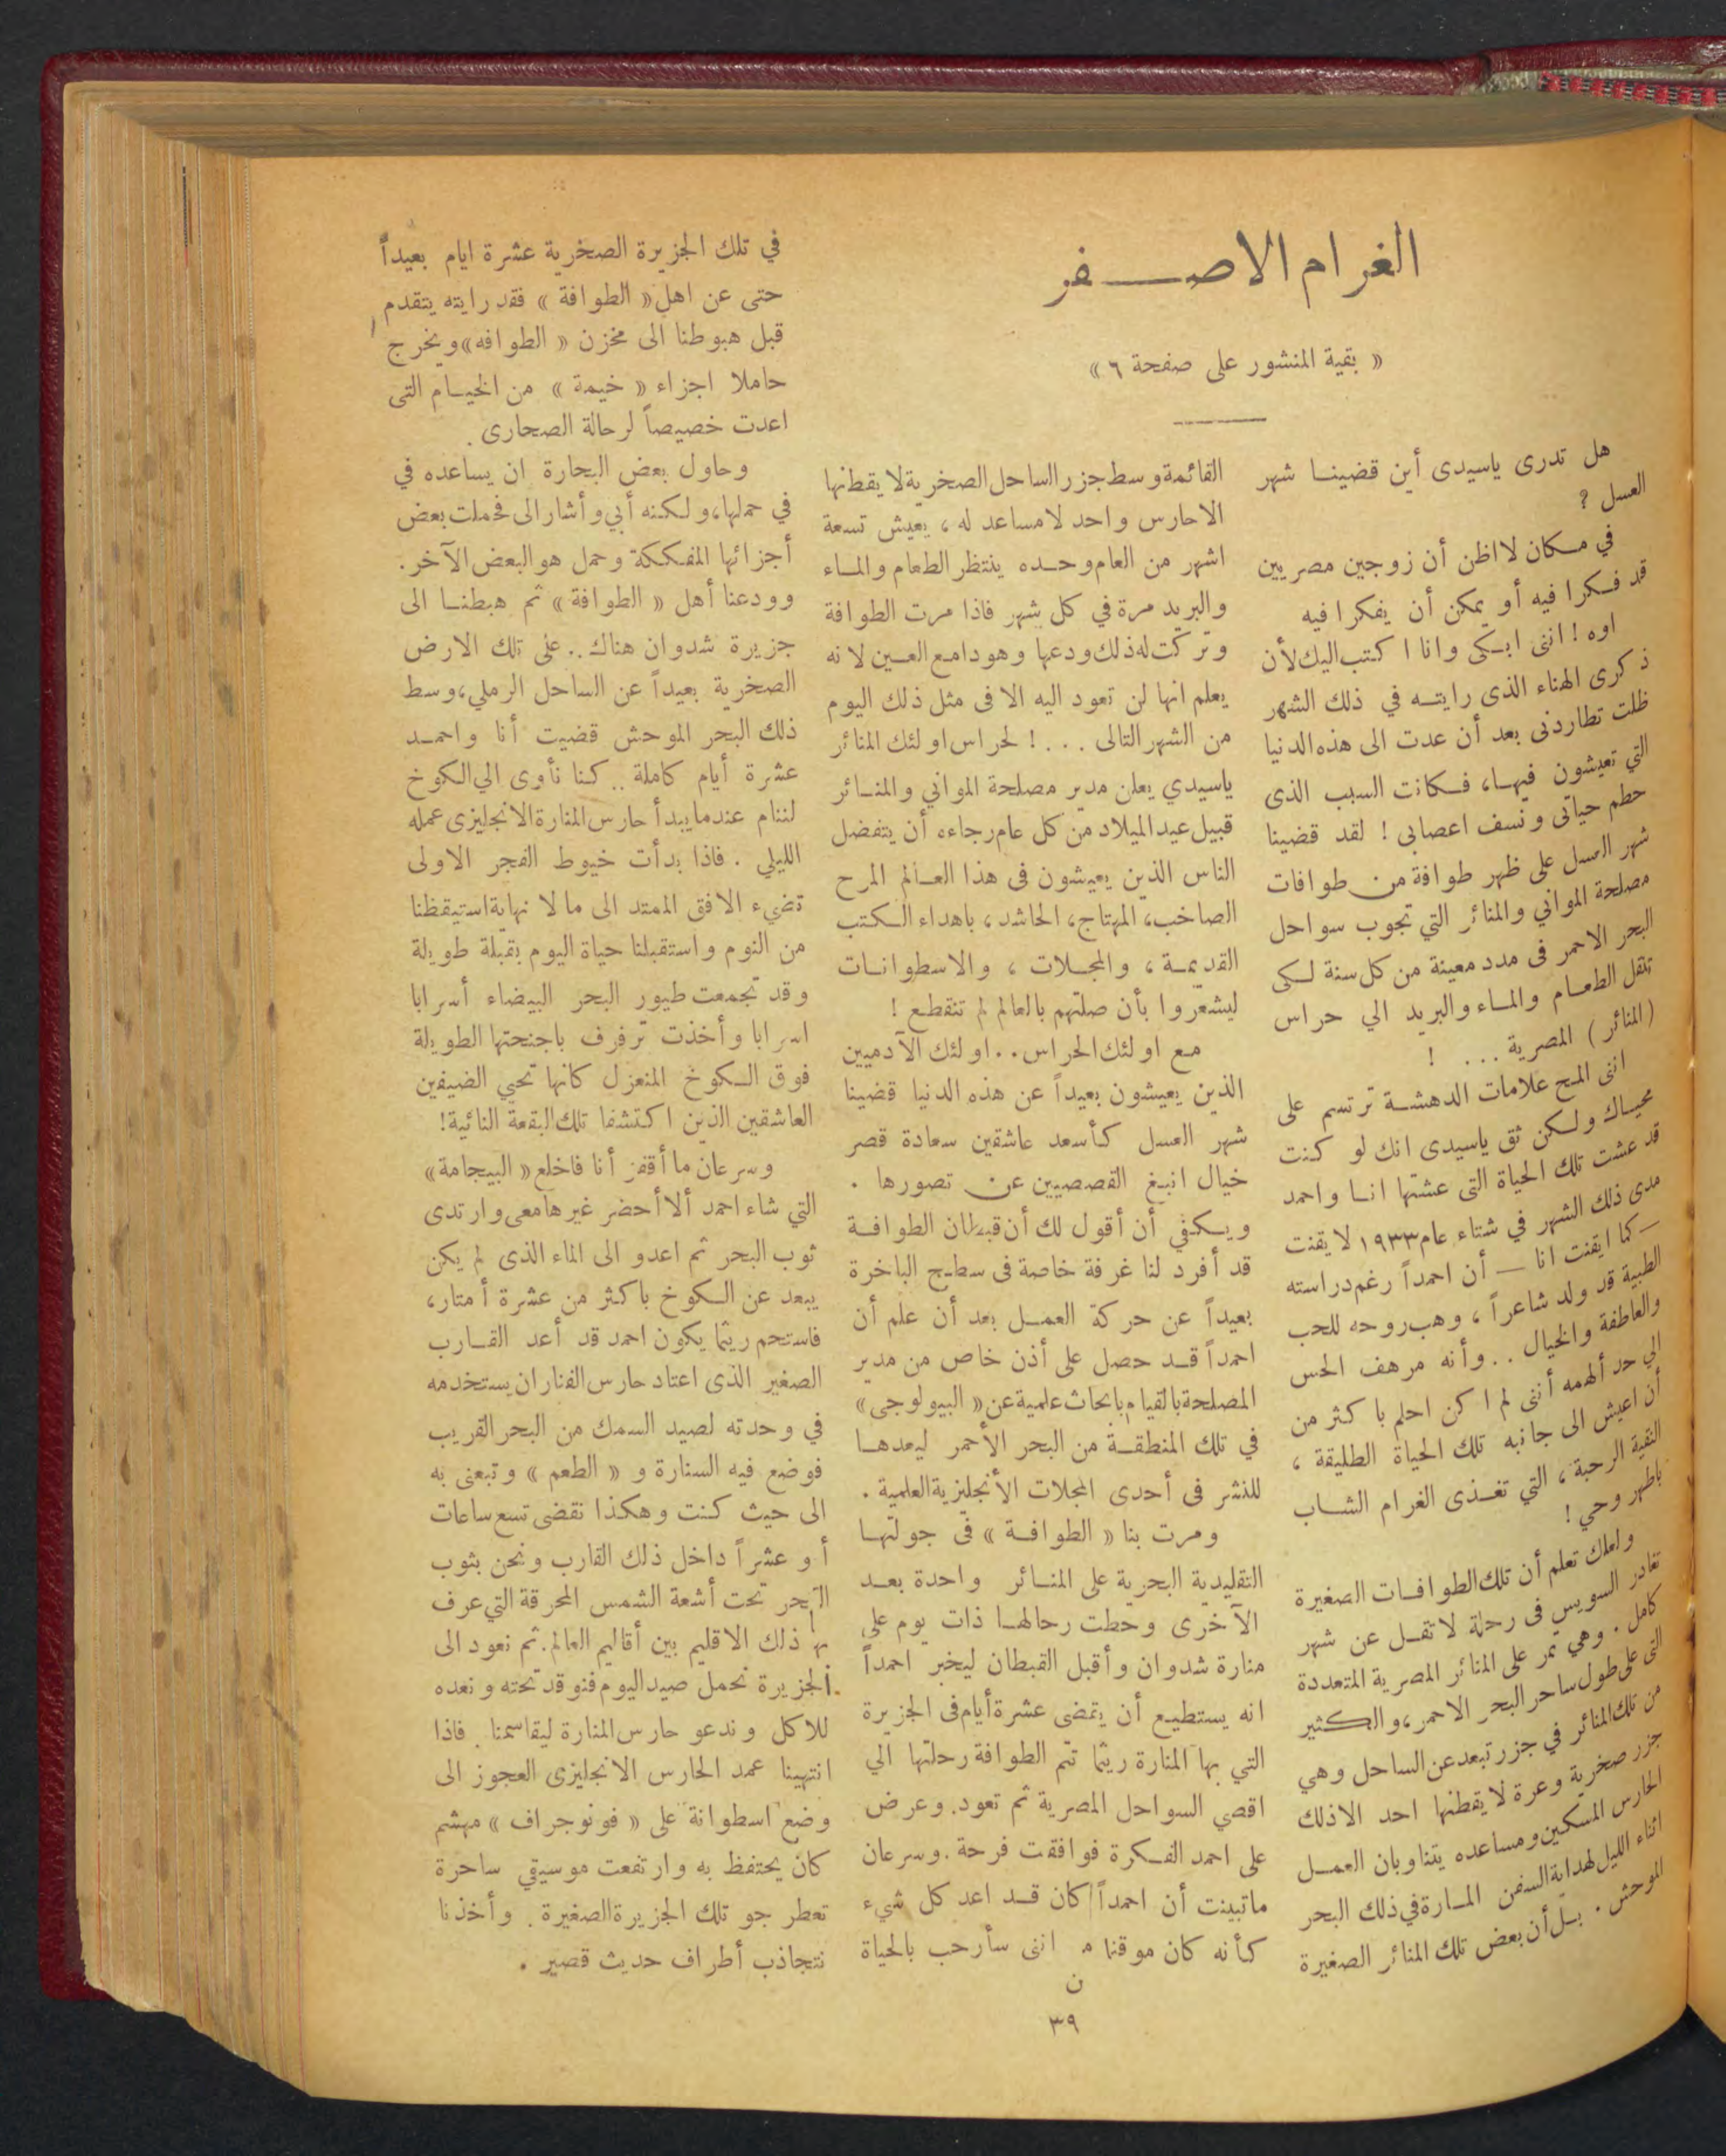 الغرام الاصفر
« بقية المنشور على صفحة ٦ »
هل تدرى ياسيدى أين قضينا شهر
العسل ?
في مكان لااظن أن زوجين مصريين
قد فكرا فيه أو يمكن أن يفكرا فيه
اوه ! اننى ابكى وانا اكتب اليك لأن
ذكرى الهناء الذى رايته في ذلك الشهر
ظلت تطاردنى بعد أن عدت الى هذه الدنيا
التي تعيشون فيها، فكانت السبب الذى
حطم حياتى ونسف اعصابى ! لقد قضينا
شهر العسل على ظهر طوافة من طوافات
مصلحة المواني والمنائر التي تجوب سواحل
البحر الاحمر فى مدد معينة من كل سنة لكى
تنقل الطعام والماء والبريد الي حراس
(المنائر) المصرية ... !
اننى المح علامات الدهشة ترتسم على
محياك ولكن ثق ياسيدى انك لو كنت
قد عشت تلك الحياة التى عشتها انا واحمد
مدى ذلك الشهر في شتاء عام ١٩٣٣ لايقنت
— كما ايقنت انا — أن احمداً رغم دراسته
الطبية قد ولد شاعراً ، وهب روحه للحب
والعاطفة والخيال .. وأنه مرهف الحس
الي حد ألهمه أننى لم اكن احلم باكثر من
أن اعيش الى جانبه تلك الحياة الطليقة ،
النقية الرحبة ، التي تغذى الغرام الشاب
باطهر وحي !
ولعلك تعلم أن تلك الطوافات الصغيرة
تغادر السويس فى رحلة لاتقل عن شهر
كامل . وهي تمر على المنائر المصرية المتعددة
التى على طول ساحر البحر الاحمر، والكثير
من تلك المنائر في جزر تبعد عن الساحل وهي
جزر صخرية وعرة لايقطنها احد الاذلك
الحارس المسكين ومساعده يتناوبان العمل
اثناء الليل لهداية السفن المارة في ذلك البحر
الموحش . بل أن بعض تلك المنائر الصغيرة
القائمة وسط جزر الساحل الصخرية لا يقطنها
الاحارس واحد لامساعد له ، يعيش تسعة
اشهر من العام وحده ينتظر الطعام والماء
والبريد مرة في كل شهر فاذا مرت الطوافة
وتركت له ذلك ودعها وهو دامع العين لانه
يعلم انها لن تعود اليه الا فى مثل ذلك اليوم
من الشهر التالى ... ! لحراس اولئك المنائر
ياسيدي يعلن مدير مصلحة المواني والمنائر
قبيل عيد الميلاد من كل عام رجاءه أن يتفضل
الناس الذين يعيشون فى هذا العالم المرح
الصاخب، المهتاج، الحاشد ، باهداء الكتب
القديمة ، والمجلات ، والاسطوانات
ليشعروا بأن صلتهم بالعالم لم تنقطع !
مع اولئك الحراس .. اولئك الآدميين
الذين يعيشون بعيداً عن هذه الدنيا قضينا
شهر العسل كأسعد عاشقين سعادة قصر
خيال انبغ القصصيين عن تصورها .
ويكفي أن أقول لك أن قبطان الطوافة
قد أفرد لنا غرفة خاصة فى سطح الباخرة
بعيداً عن حركة العمل بعد أن علم أن
احمداً قد حصل على أذن خاص من مدير
المصلحة بالقيام بابحاث علمية عن « البيولوجى »
في تلك المنطقة من البحر الأحمر ليعدها
للنشر فى أحدى المجلات الأنجليزية العلمية .
ومرت بنا « الطوافة » فى جولتها
التقليدية البحرية على المنائر واحدة بعد
الآخرى وحطت رحالها ذات يوم على
منارة شدوان وأقبل القبطان ليخبر احمداً
انه يستطيع أن يمضى عشرة أيام فى الجزيرة
التي بها المنارة ريثما تتم الطوافة رحلتها الي
اقصي السواحل المصرية ثم تعود. وعرض
على احمد الفكرة فوافقت فرحة . وسرعان
ماتبينت أن احمداً كان قد اعد كل شيء
كأنه كان موقنا م اننى سأرحب بالحياة
ن
في تلك الجزيرة الصخرية عشرة ايام بعيداً
حتى عن اهل « الطوافة » فقد رايته يتقدم
قبل هبوطنا الى مخزن « الطوافه » ويخرج
حاملا اجزاء « خيمة » من الخيام التى
اعدت خصيصاً لرحالة الصحارى .
وحاول بعض البحارة ان يساعده في
في حملها، ولكنه أبي وأشار الى فحملت بعض
أجزائها المفككة وحمل هو البعض الآخر .
وودعنا أهل « الطوافة » ثم هبطنا الى
جزيرة شدوان هناك .. على تلك الارض
الصخرية بعيداً عن الساحل الرملي، وسط
ذلك البحر الموحش قضيت أنا واحمد
عشرة أيام كاملة .. كنا نأوى الي الكوخ
لننام عندما يبدأ حارس المنارة الانجليزى عمله
الليلي . فاذا بدأت خيوط الفجر الاولى
تضيء الافق الممتد الى ما لا نهاية استيقظنا
من النوم واستقبلنا حياة اليوم بقبلة طويلة
وقد تجمعت طيور البحر البيضاء أسرابا
اسرابا وأخذت ترفرف باجنحتها الطويلة
فوق الكوخ المنعزل كانها تحيي الضيفين
العاشقين الذين اكتشفا تلك البقعة النائية !
وسرعان ما أقفز أنا فاخلع « البيجامة »
التي شاء احمد ألا أحضر غيرها معى وارتدى
ثوب البحر ثم اعدو الى الماء الذى لم يكن
يبعد عن الكوخ باكثر من عشرة أمتار ،
فاستحم ريثما يكون احمد قد أعد القارب
الصغير الذى اعتاد حارس الفنار ان يستخدمه
في وحدته لصيد السمك من البحر القريب
فوضع فيه السنارة و « الطعم » وتبعنى به
الى حيث كنت وهكذا نقضى تسع ساعات
أو عشراً داخل ذلك القارب ونحن بثوب
البحر تحت أشعة الشمس المحرقة التي عرف
بها ذلك الاقليم بين أقاليم العالم. ثم نعود الى
الجزيرة نحمل صيد اليوم فنوقد تحته ونعده
للاكل وندعو حارس المنارة ليقاسمنا . فاذا
انتهينا عمد الحارس الانجليزى العجوز الى
وضع اسطوانة على « فونوجراف » مهشم
كان يحتفظ به وارتفعت موسيقي ساحرة
تعطر جو تلك الجزيرة الصغيرة . وأخذنا
نتجاذب أطراف حديث قصير .
٣٩